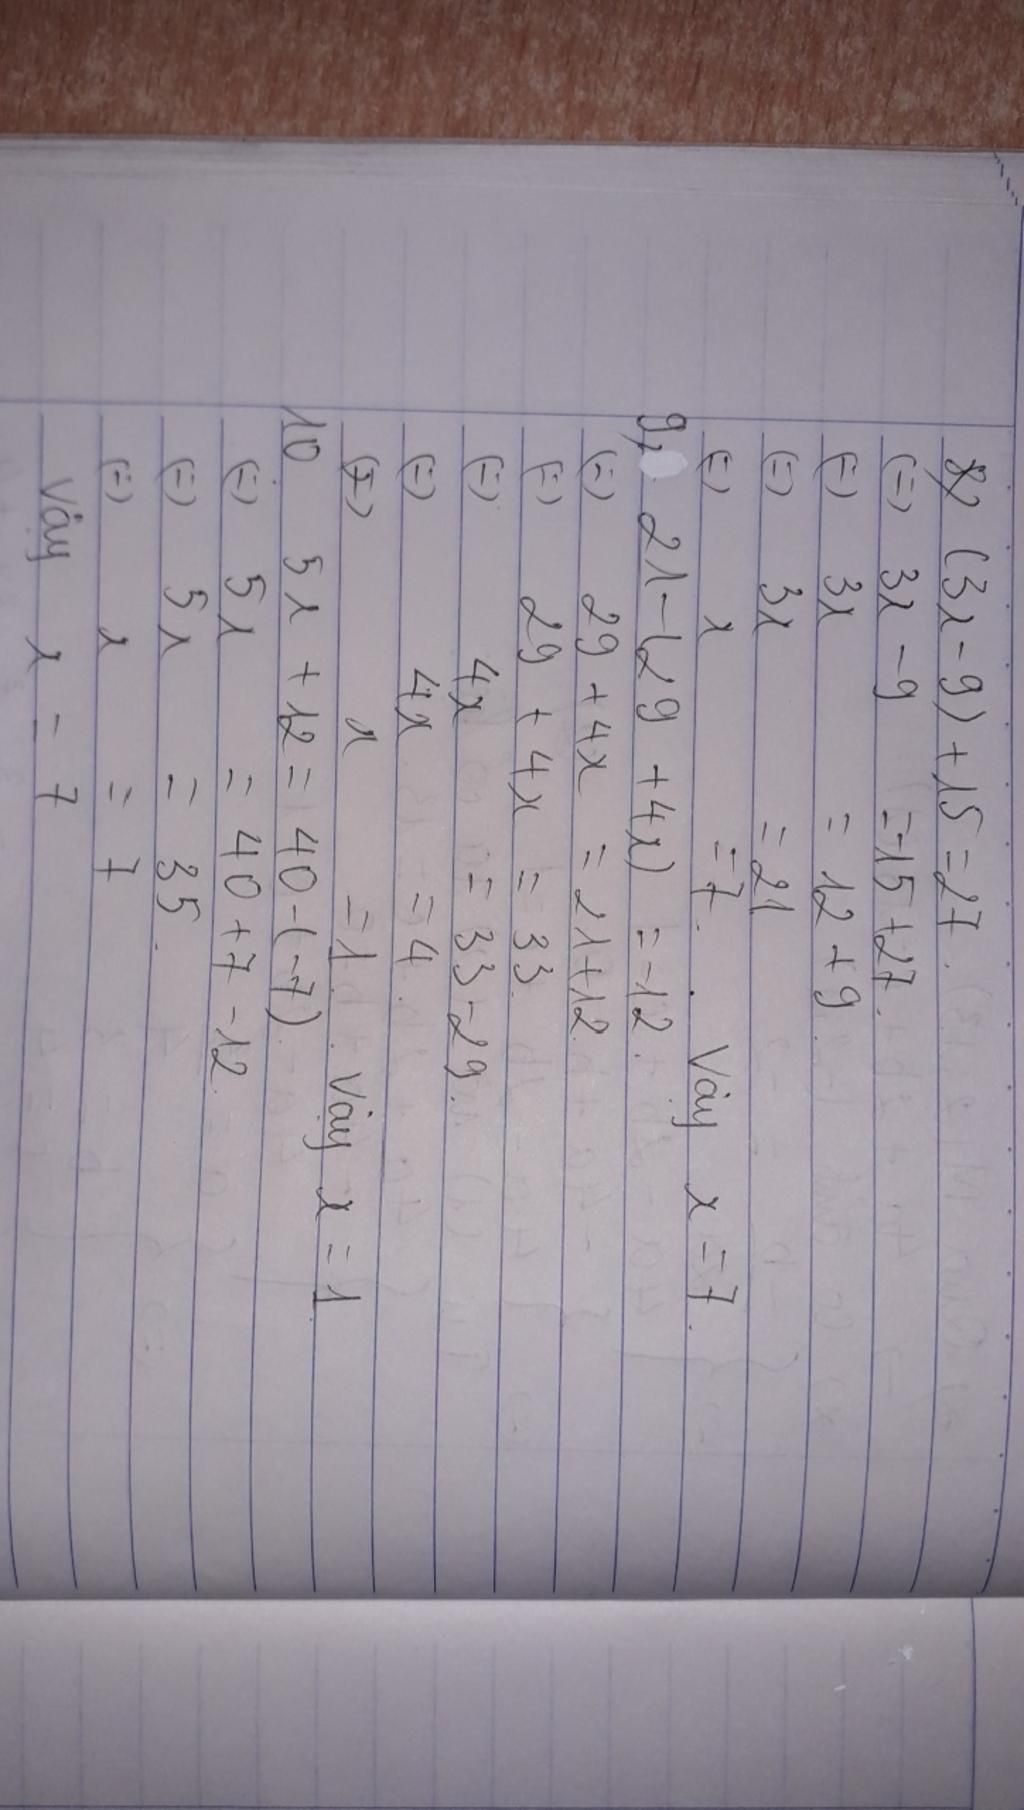 8, (3x - 9) + 15 = 27.
(=) 3x - 9 = -15 + 27.
(=) 3x = 12 + 9.
(=) 3x = 21
(=) x = 7. Vậy x = 7.
9, 21 - (29 + 4x) = -12.
(=) 29 + 4x = 21 + 12.
(=) 29 + 4x = 33.
(=) 4x = 33 - 29.
(=) 4x = 4.
(=) x = 1. Vậy x = 1
10 5x + 12 = 40 - (-7).
(=) 5x = 40 + 7 - 12.
(=) 5x = 35.
(=) x = 7
Vậy x = 7